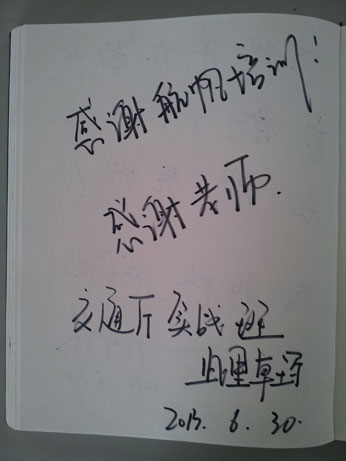 感谢航帆培训!
感谢老师.
交通厅实战班
旦增卓玛
2013. 6. 30.